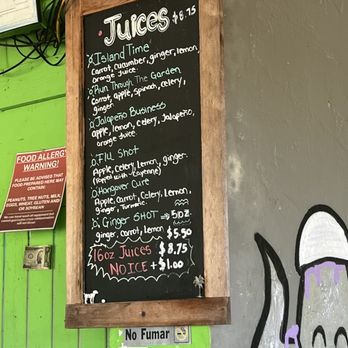 Juices $8.75
Island Time
Carrot, Cucumber, ginger, lemon,
orange Juice.
Run Through The Garden
Carrot, apple, Spinach, celery,
ginger.
Jalapeño Business
apple, lemon, celery, Jalapeño,
orange.
Flu Shot
Apple, Celery, lemon, ginger.
(Topped with -Cayenne)
Hangover Cure
Apple, Carrot, Celery, Lemon,
Ginger, Turmeric.
Ginger SHOT 5oz
ginger, Carrot, lemon $5.50
16oz Juices $8.75
NO ICE + $1.00
FOOD ALLERGY
WARNING!
PLEASE BE ADVISED THAT
FOOD PREPARED HERE MAY
CONTAIN:
PEANUTS, TREE NUTS, MILK,
EGGS, WHEAT, GLUTEN AND
OR SOYBEAN
No Fumar